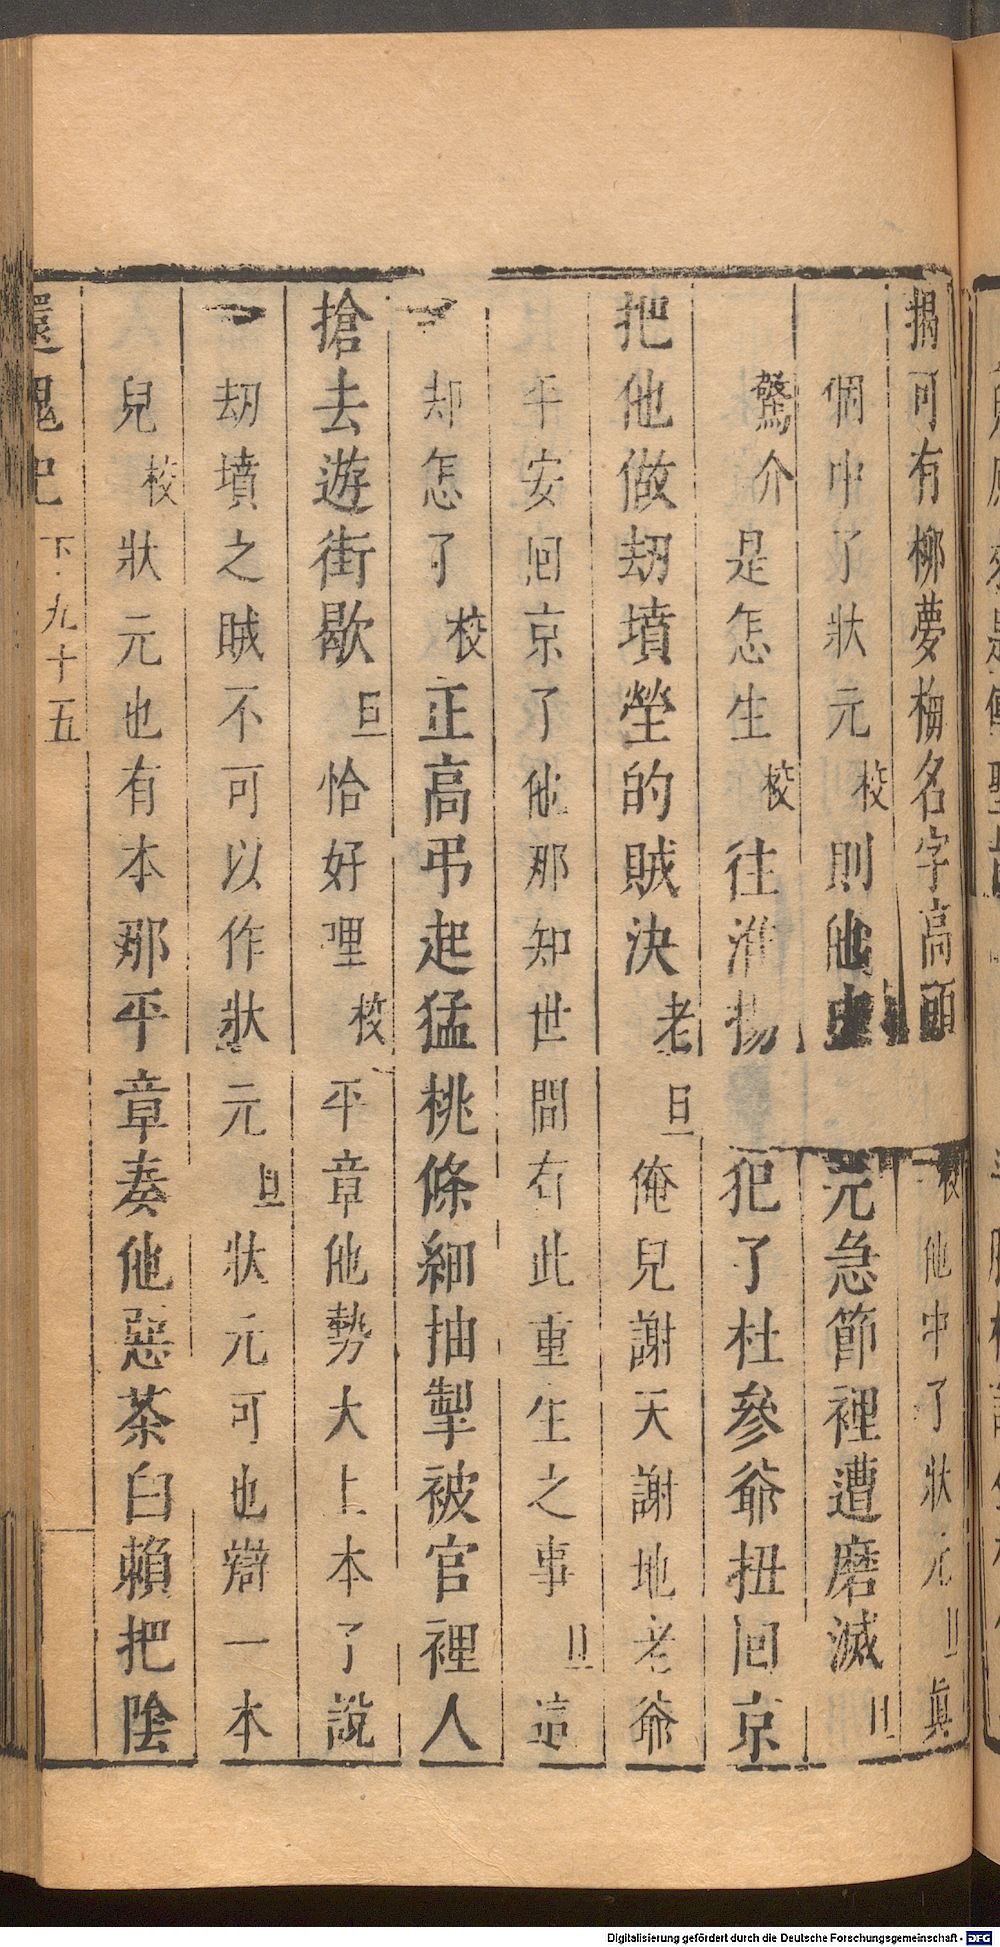 揭可有柳夢梅名字高頭校他中了狀元旦真
個中了狀元校則他中元急節裡遭磨滅旦
驚介是怎生校往淮揚犯了杜參爺扭回京
把他做劫墳塋的賊決老旦俺兒謝天謝地老爺
平安回京了他那知世間有此重生之事旦這
却怎了校正高弔起猛桃條細抽掣被官裡人
搶去遊街歇旦恰好哩校平章他勢大上本了說
劫墳之賊不可以作狀元旦狀元可也辯一本
兒校狀元也有本那平章奏他惡茶白賴把陰
還魂記 下 九十五
Digitalisierung gefördert durch die Deutsche Forschungsgemeinschaft - DFG